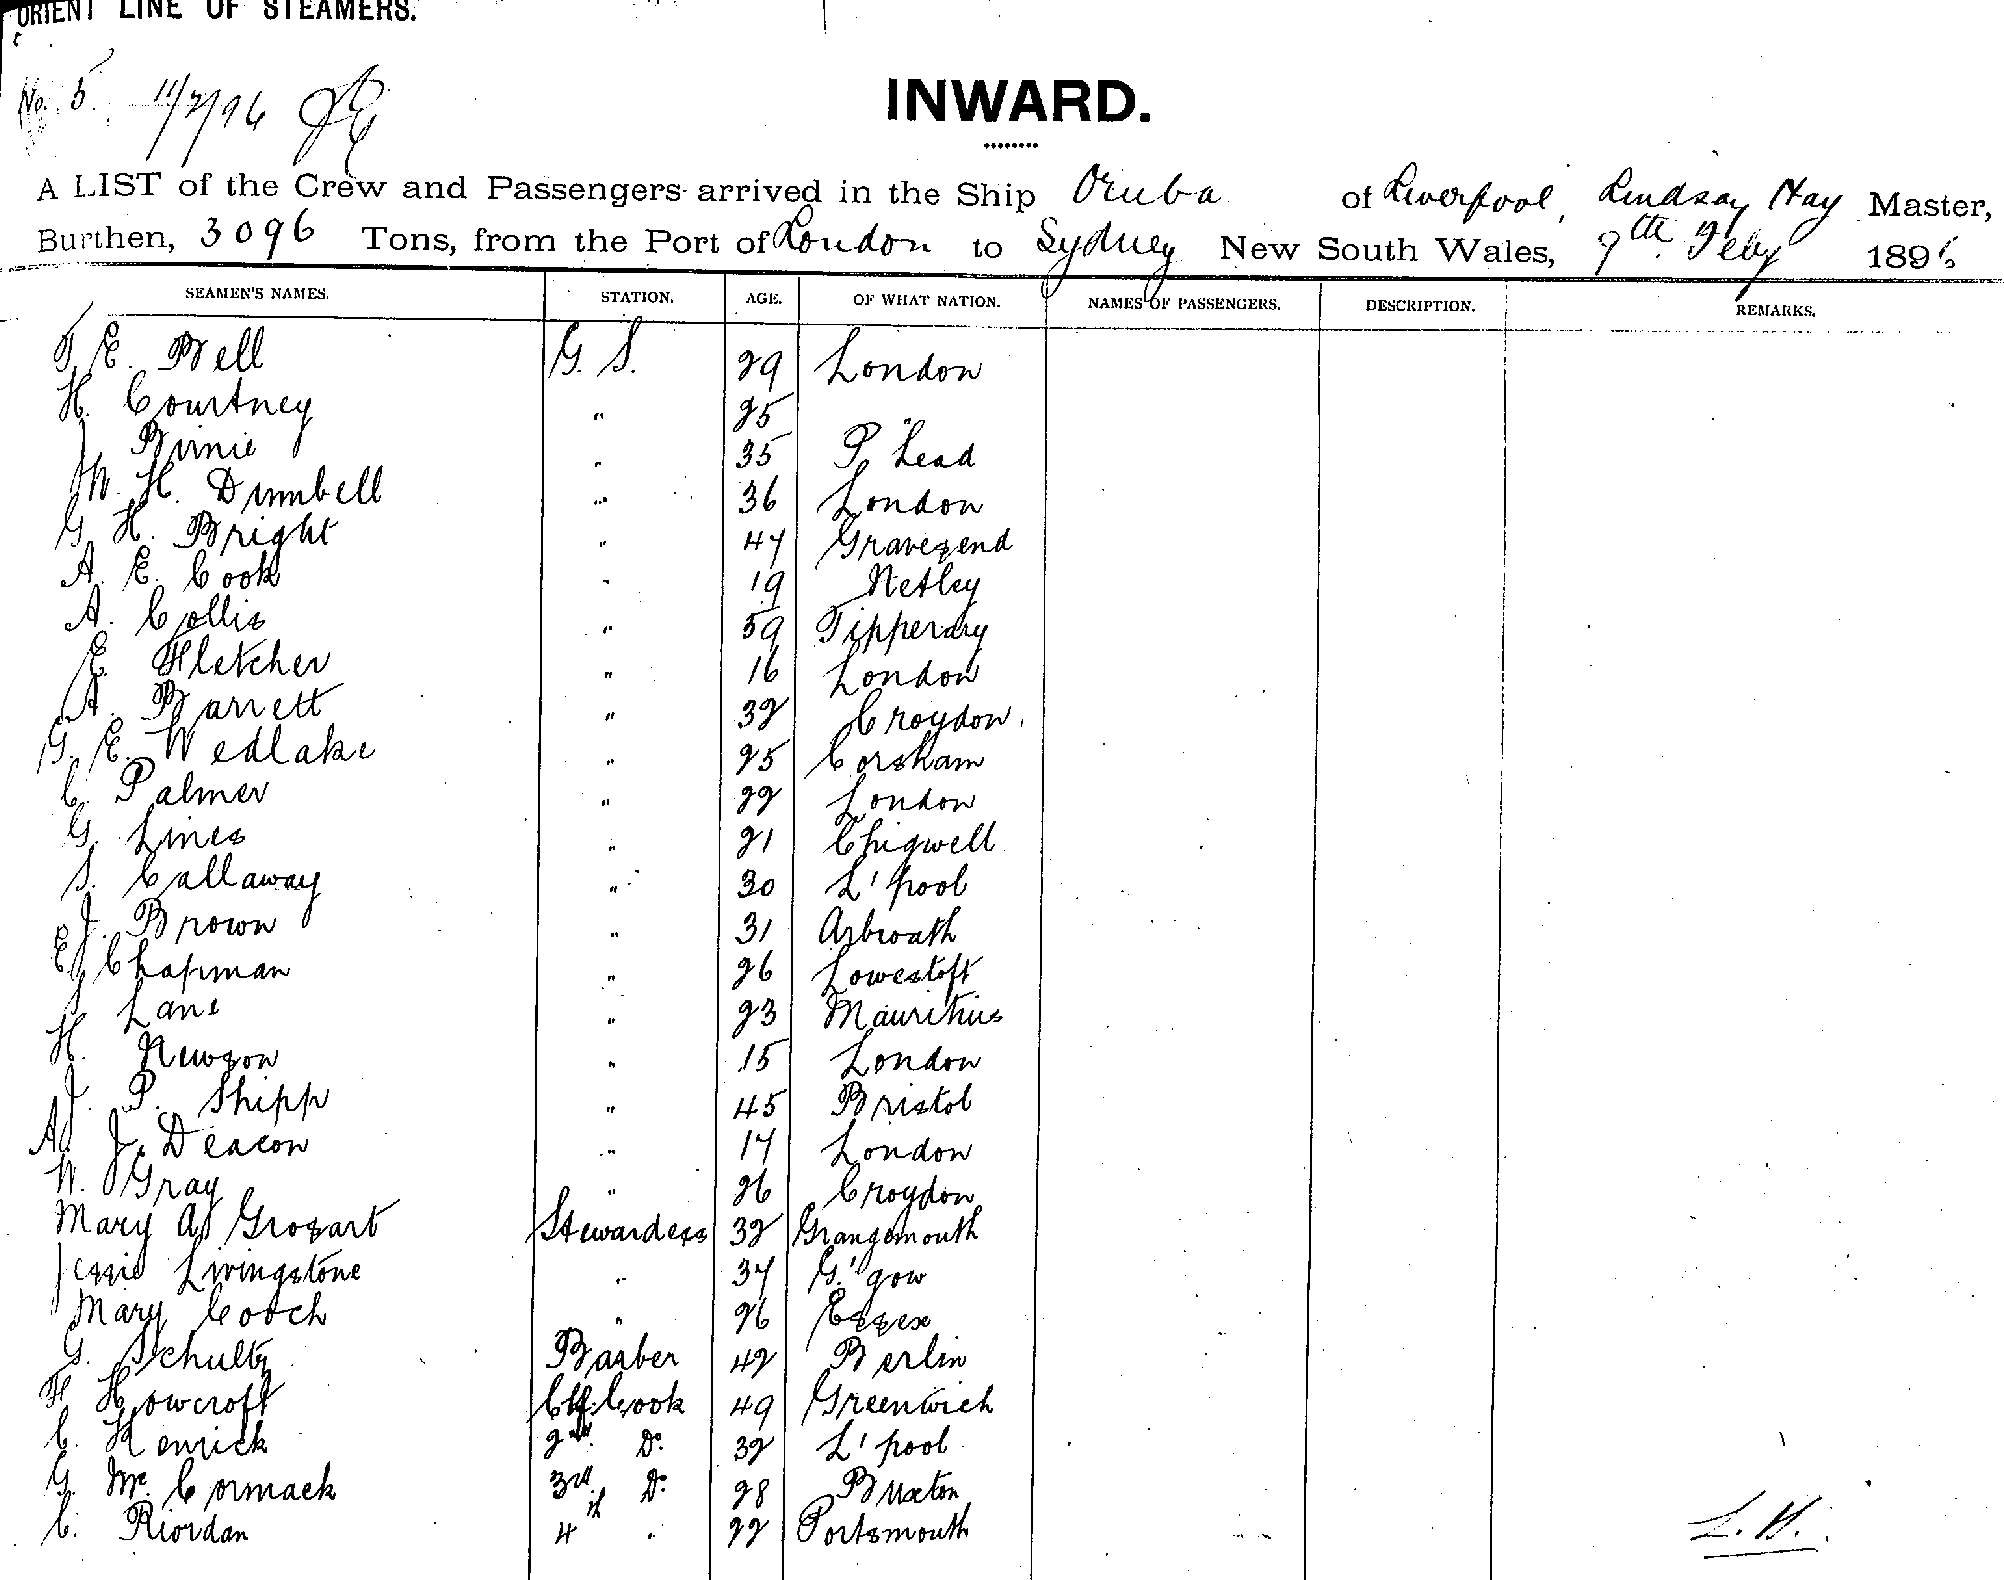 ORIENT LINE OF STEAMERS.
No. 5. 11/2/96
INWARD.
A LIST of the Crew and Passengers arrived in the Ship Oruba of Liverpool, Lindsay Hay Master,
Burthen, 3096 Tons, from the Port of London to Sydney New South Wales, 9th Feby 1896
SEAMEN'S NAMES. STATION. AGE. OF WHAT NATION. NAMES OF PASSENGERS. DESCRIPTION. REMARKS.
T. E. Bell G. S. 29 London
H. Courtney " 25 "
J. Birnie " 35 P. Head
W. H. Dumbell " 36 London
G. H. Bright " 47 Gravesend
A. E. Cook " 19 Netley
A. Collis " 59 Tipperary
E. Fletcher " 16 London
A. Barrett " 32 Croydon.
G. E. Wedlake " 25 Corsham
C. Palmer " 22 London
G. Lines " 21 Chigwell
S. Callaway " 30 L'pool
J. Brown " 31 Arbroath
E J Chapman " 26 Lowestoft
S. Lane " 23 Mauritius
H. Newson " 15 London
J. P. Shipp " 45 Bristol
A J. Deacon " 17 London
W. Gray " 26 Croydon
Mary A Grosart Stewardess 32 Grangemouth
Jessie Livingstone " 37 G'gow
Mary Cooch " 26 Essex
G. Schultz Barber 42 Berlin
H Howcroft Chf. Cook 49 Greenwich
C. Kenrick 2nd. Do. 32 L'pool
G. McCormack 3rd. Do. 28 Buxton
C. Riordan 4th " 22 Portsmouth
L. H.